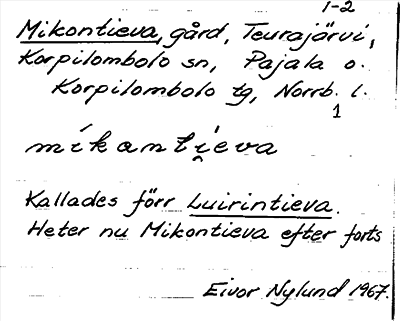 1-2
Mikontieva, gård, Teurajärvi,
Korpilombolo sn, Pajala o.
Korpilombolo tg, Norrb. l.
1
míkanti̯eva
Kallades förr Luirintieva.
Heter nu Mikontieva efter forts
Eivor Nylund 1967.